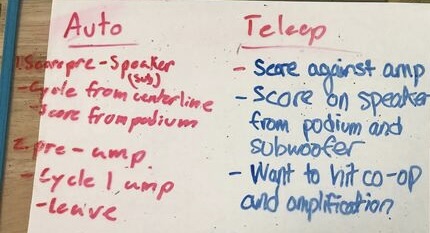 Auto
1. Score pre-Speaker
(sub)
- Cycle from centerline
- Score from podium
2. pre-amp
- Cycle 1 amp
- leave
Teleop
- Score against amp
- Score on speaker
from podium and
subwoofer
- Want to hit co-op
and amplification